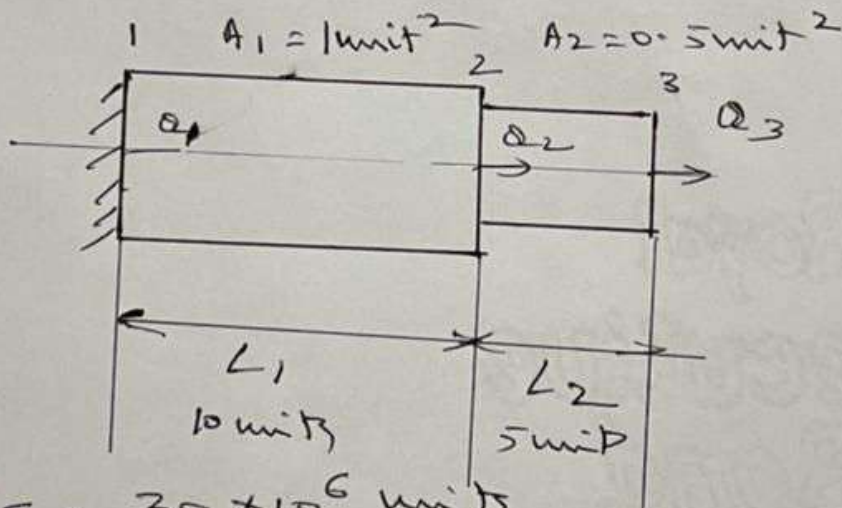 1 A1 = 1unit² A2 = 0.5unit²
2
3
Q1 Q2 Q3
L1 L2
10 units 5 unit
30 × 10⁶ units